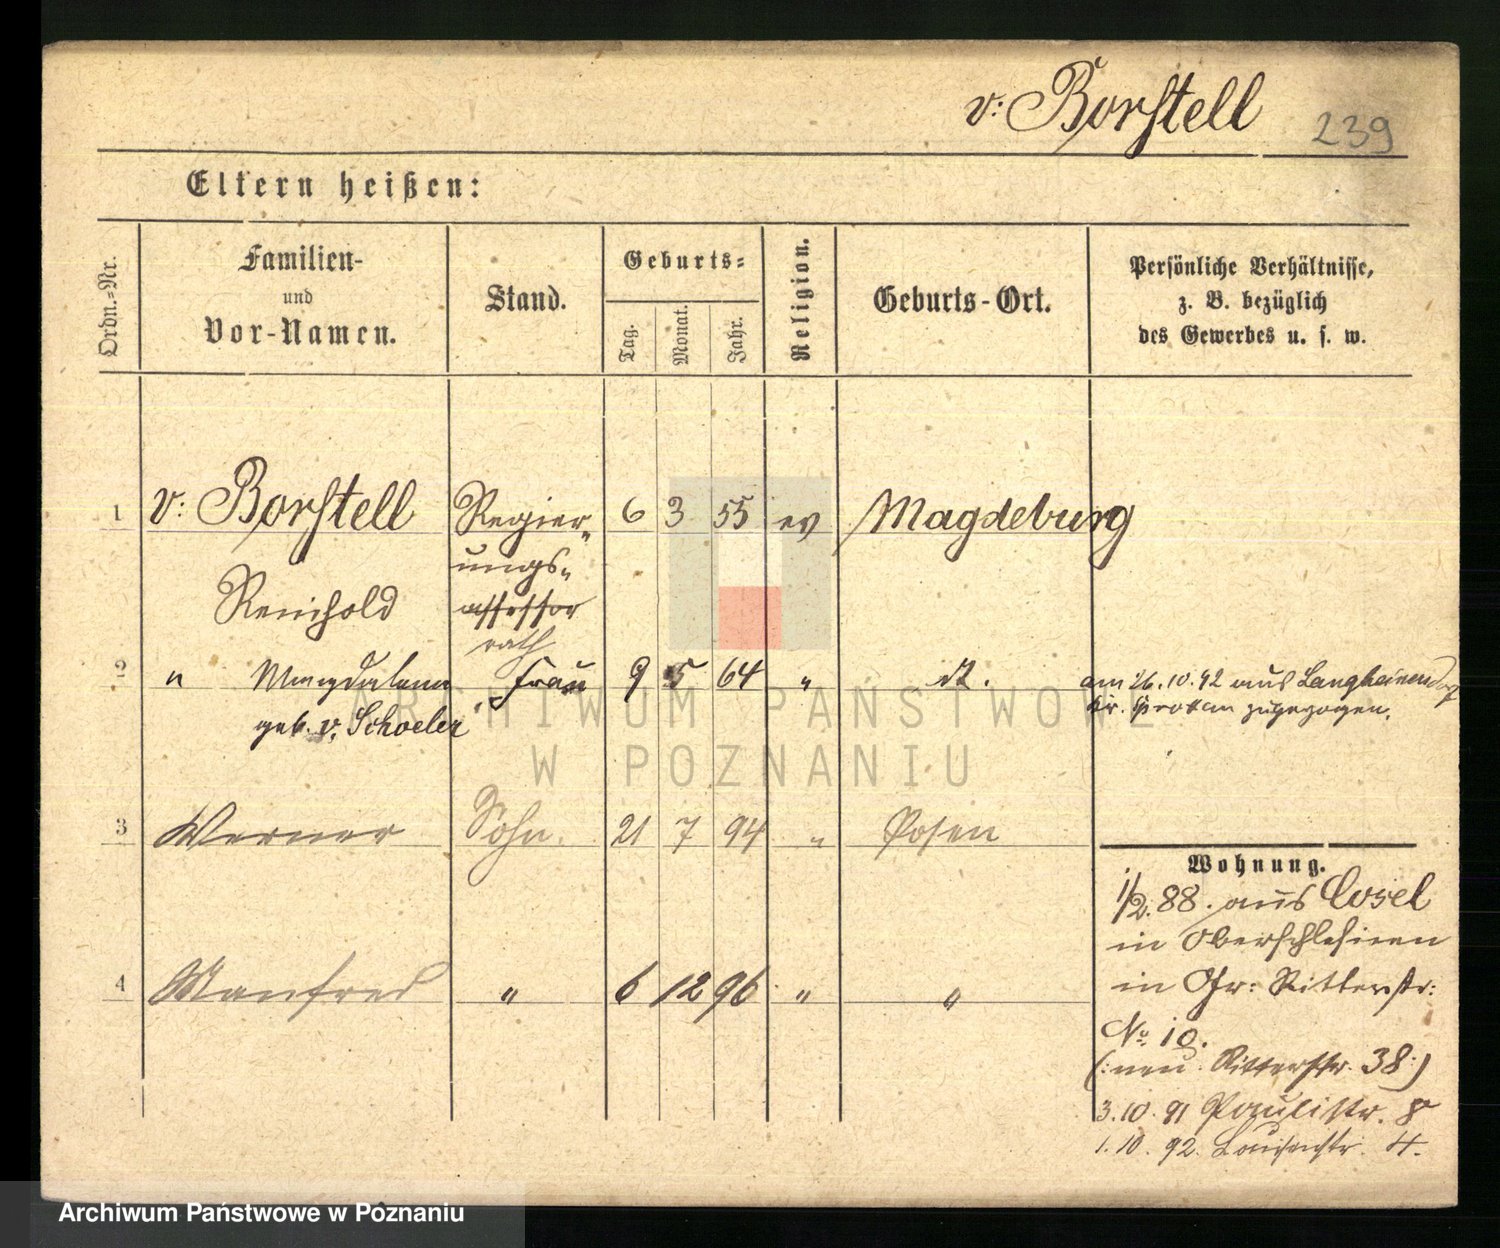 v: Borstell 239
Eltern heißen:
Ordn.-Nr.
Familien-
und
Vor-Namen.
Stand.
Geburts-
Tag.
Monat.
Jahr.
Religion.
Geburts-Ort.
Persönliche Verhältnisse,
z. B. bezüglich
des Gewerbes u. s. w.
1 v: Borstell Regier- 6 3 55 ev Magdeburg
ungs-
Reinhold assessor
rath
2 " Magdalena Frau 9 5 64 " dt. am 26.10.92 aus Langheinersdorf
geb. v. Schoeler Kr. zugezogen.
3 Werner Sohn. 21 7 94 " Posen
4 Manfred " 6 12 96 " "
Wohnung.
1/2.88. aus Cosel
in Oberschlesien
in Gr: Ritterstr:
No 10.
(: neu. Ritterstr. 38 :)
3.10.91 Paulistr. 8
1.10.92. Louisenstr. 4.
ARCHIWUM PAŃSTWOWE
W POZNANIU
Archiwum Państwowe w Poznaniu